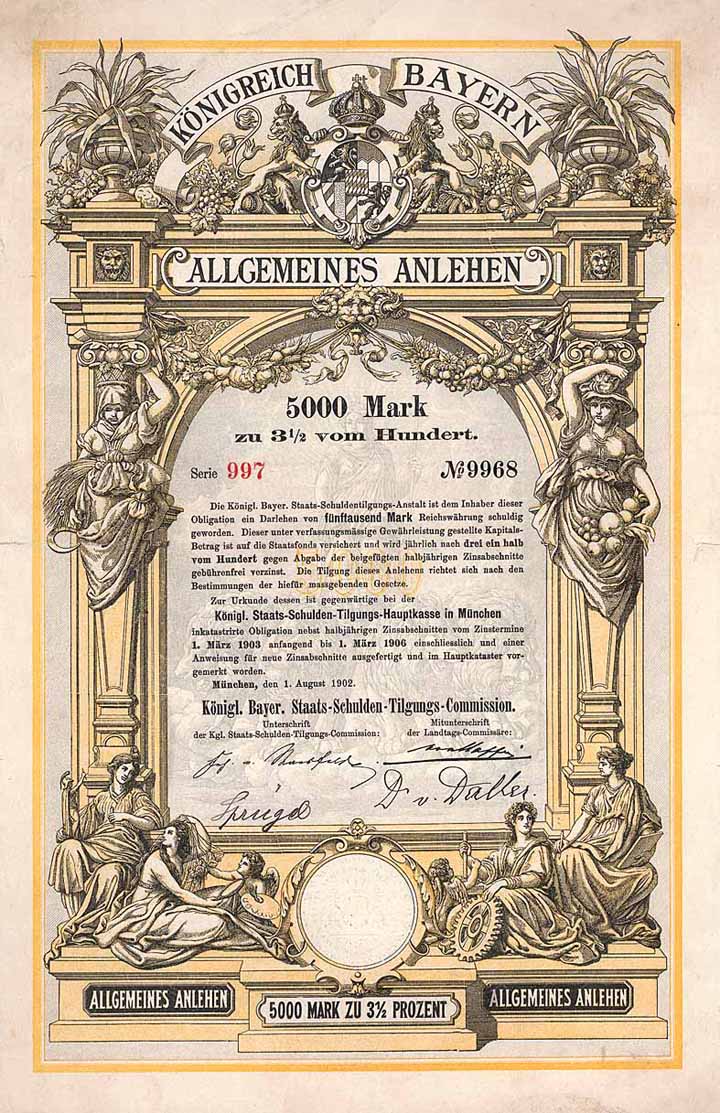 KÖNIGREICH BAYERN
ALLGEMEINES ANLEHEN
5000 Mark
zu 3½ vom Hundert.
Serie 997 № 9968
Die Königl. Bayer. Staats-Schuldentilgungs-Anstalt ist dem Inhaber dieser
Obligation ein Darlehen von fünftausend Mark Reichswährung schuldig
geworden. Dieser unter verfassungsmässige Gewährleistung gestellte Kapitals-
Betrag ist auf die Staatsfonds versichert und wird jährlich nach drei ein halb
vom Hundert gegen Abgabe der beigefügten halbjährigen Zinsabschnitte
gebührenfrei verzinst. Die Tilgung dieses Anlehens richtet sich nach den
Bestimmungen der hiefür massgebenden Gesetze.
Zur Urkunde dessen ist gegenwärtige bei der
Königl. Staats-Schulden-Tilgungs-Hauptkasse in München
inkatastrirte Obligation nebst halbjährigen Zinsabschnitten vom Zinstermine
1. März 1903 anfangend bis 1. März 1906 einschliesslich und einer
Anweisung für neue Zinsabschnitte ausgefertigt und im Hauptkataster vor-
gemerkt worden.
München, den 1. August 1902.
Königl. Bayer. Staats-Schulden-Tilgungs-Commission.
Unterschrift Mitunterschrift
der Kgl. Staats-Schulden-Tilgungs-Commission: der Landtags-Commissäre:
Sprügel Dr v. Daller.
ALLGEMEINES ANLEHEN
5000 MARK ZU 3½ PROZENT
ALLGEMEINES ANLEHEN